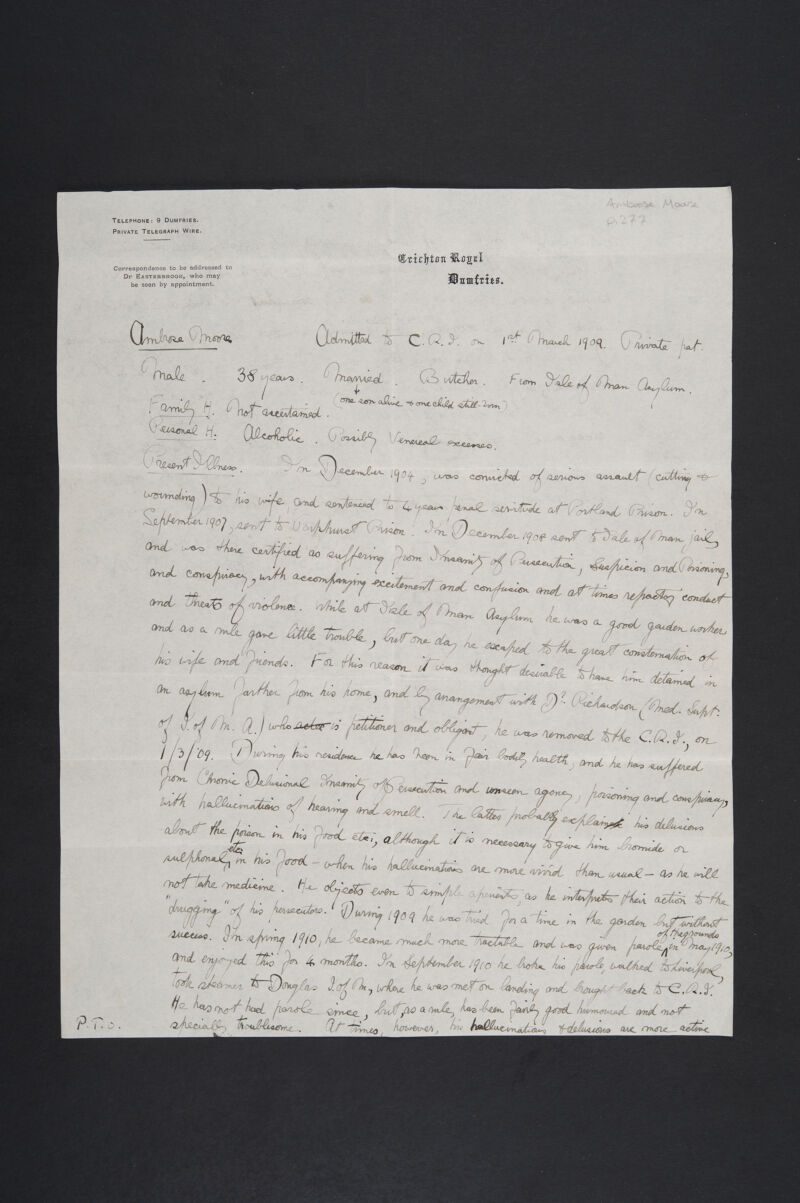 Ambrose Moore
p. 277
TELEPHONE: 9 DUMFRIES.
PRIVATE TELEGRAPH WIRE.
Correspondence to be addressed to
DR EASTERBROOK, who may
be seen by appointment.
Crichton Royal
Dumfries.
Ambrose Moore Admitted to C.R.I. on 1st March 1909. Private pat.
Male. 38 years. Married. Butcher. From Isle of Man Asylum.
(one son alive & one child still-born)
Family H. Not ascertained.
Personal H: Alcoholic. Possibly Venereal excesses.
Present Illness. In December 1904, was convicted of serious assault (cutting &
wounding) to his wife, and sentenced to 4 years penal servitude at Portland Prison. In
September 1907, sent to Parkhurst Prison. In December 1908 sent to Isle of Man Jail,
and was there certified as suffering from Insanity of Persecution, Suspicion and Poisoning,
and conspiracy, with accompanying excitement and confusion and at times refractory conduct
and threats of violence. While at Isle of Man Asylum he was a good garden worker
and as a rule gave little trouble, but one day he escaped to the great consternation of
his wife and friends. For this reason it was thought desirable to have him detained in
an asylum farther from his home, and by arrangement with Dr. Richardson (Med. Supt.
of I. of M. A.) who is petitioner and obligant, he was removed to the C.R.I., on
1/3/09. During his residence he has been in fair bodily health, and he has suffered
from Chronic Delusional Insanity of Persecution and unseen agency, poisoning and conspiracy,
with hallucinations of hearing and smell. The latter probably explain his delusions
about the poison in his food etc., although it is necessary to give him bromide or
sulphonal, etc. in his food – when his hallucinations are more vivid than usual – as he will
not take medicine. He objects even to simple aperients, as he interprets their action to the
"drugging" of his persecutors. During 1909 he was tried for a time in the garden but without
success. In spring 1910, he became much more tractable and was given parole of the grounds in May 1910,
and enjoyed this for 4 months. In September 1910 he broke his parole, walked to Liverpool,
took steamer to Douglas I. of M., where he was met on landing and brought back to C.R.I.
He has not had parole since, but, as a rule, has been fairly good humoured and not
specially troublesome. At times, however, his hallucinations & delusions are more active
P.T.O.